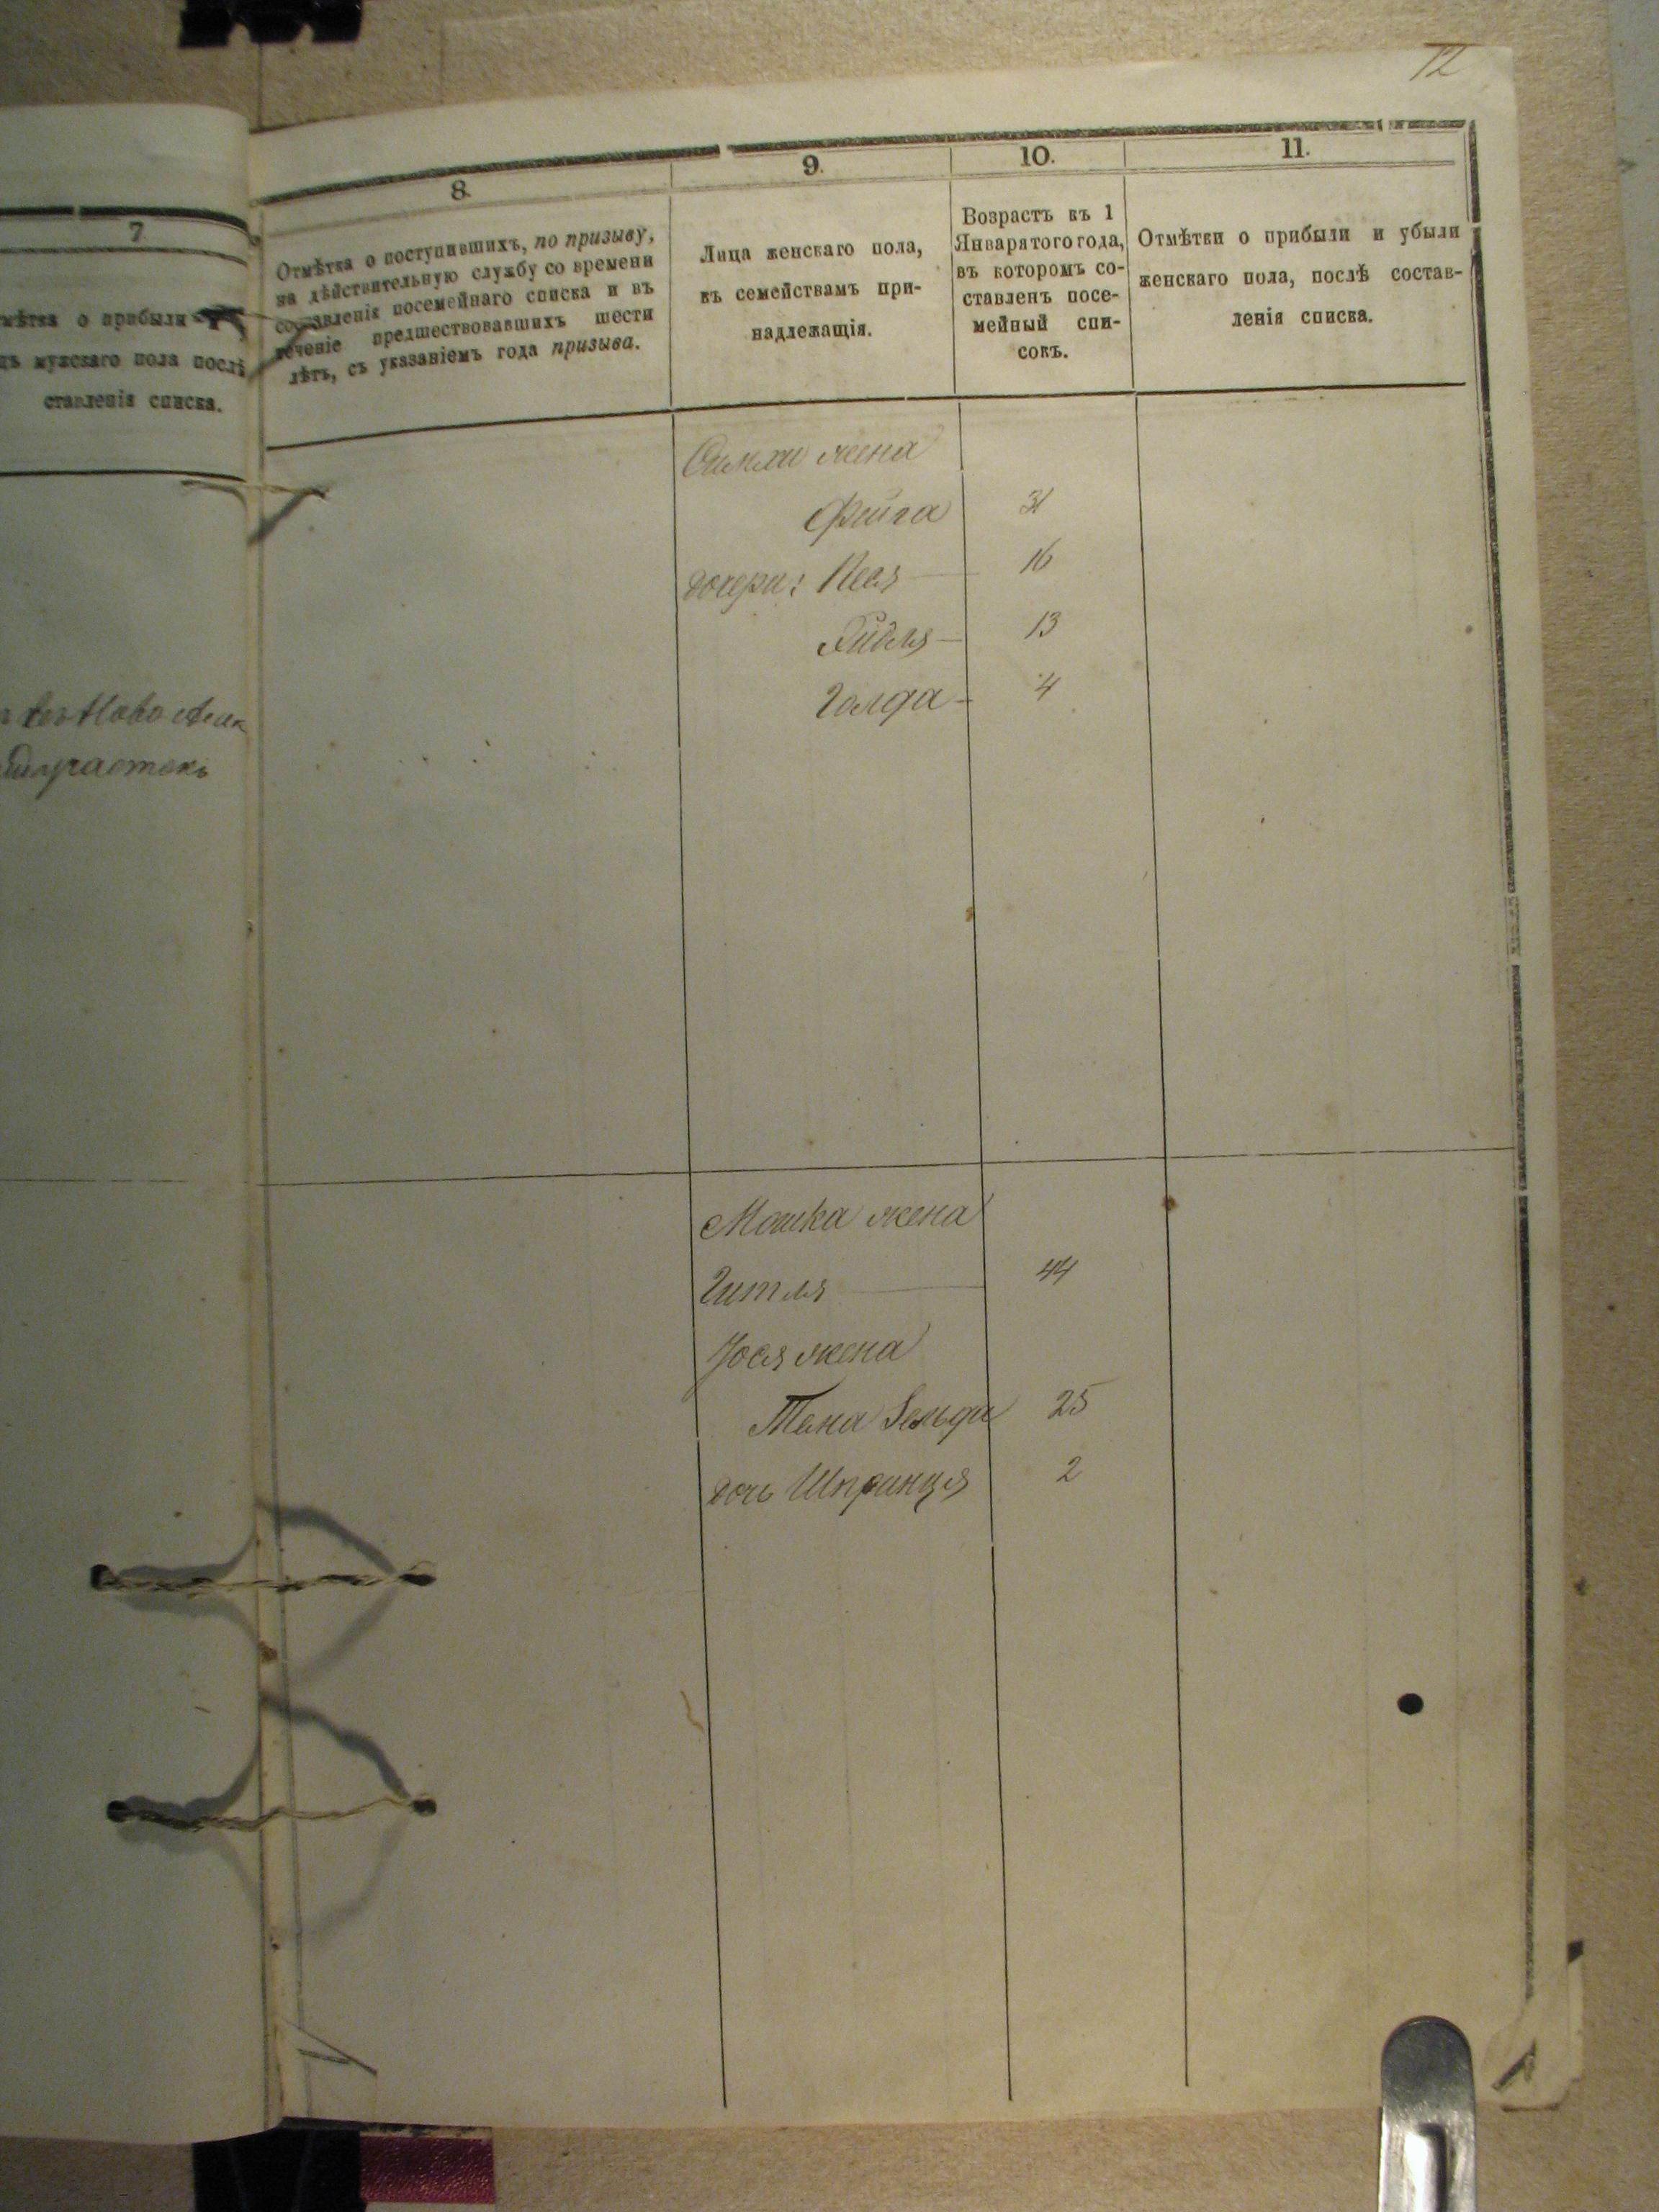 12
7
8.
9.
10.
11.
о прибыли
мужскаго пола послѣ
ставленія списка.
Отмѣтка о поступившихъ, по призыву,
на дѣйствительную службу со времени
составленія посемейнаго списка и въ
теченіе предшествовавшихъ шести
лѣтъ, съ указаніемъ года призыва.
Лица женскаго пола,
къ семействамъ при-
надлежащія.
Возрастъ къ 1
Января того года,
въ которомъ со-
ставленъ посе-
мейный спи-
сокъ.
Отмѣтки о прибыли и убыли
женскаго пола, послѣ состав-
ленія списка.
жена
Фейга 31
дочери: Песя 16
13
Голда 4
участокъ
Мошка жена
Гитля 44
Іося жена
Зельда 25
дочь Шпринця 2